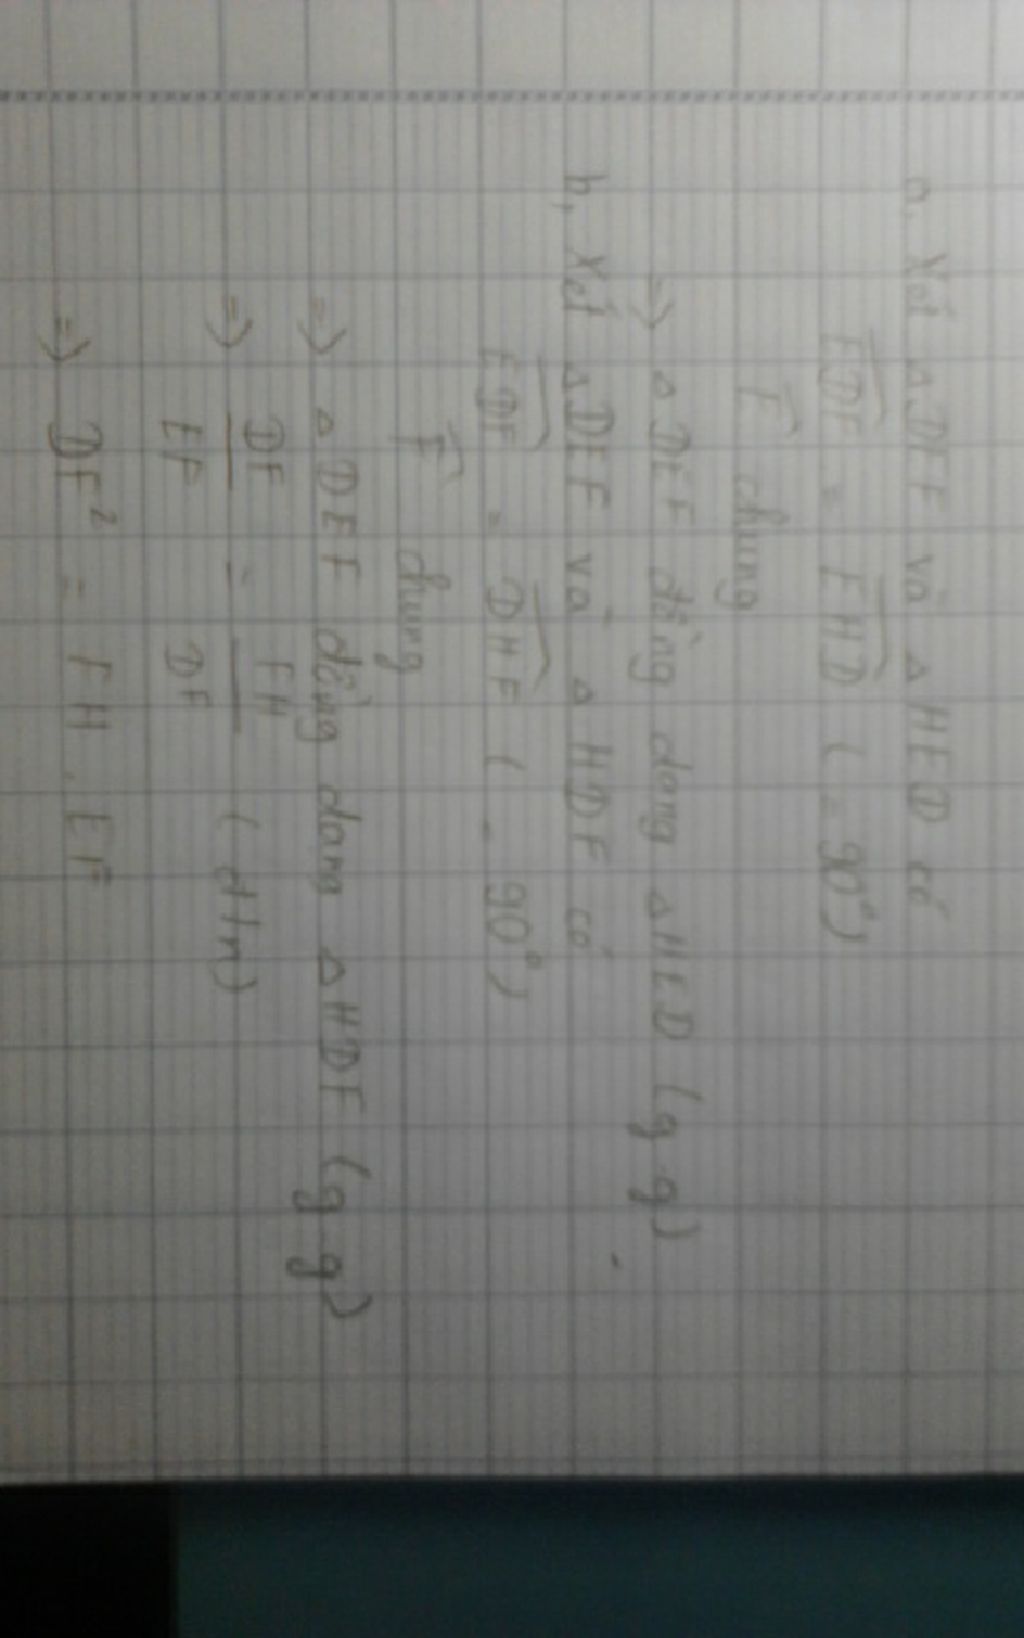 a, Xét △DEF và △HED có
EDF = EHD ( = 90°)
E chung
=> △DEF đồng dạng △HED (g.g)
b, Xét △DEF và △HDF có
EDF = DHF ( = 90°)
F chung
=> △DEF đồng dạng △HDF (g g)
=> DF/EF = FH/DF (đ/n)
=> DF² = FH . EF